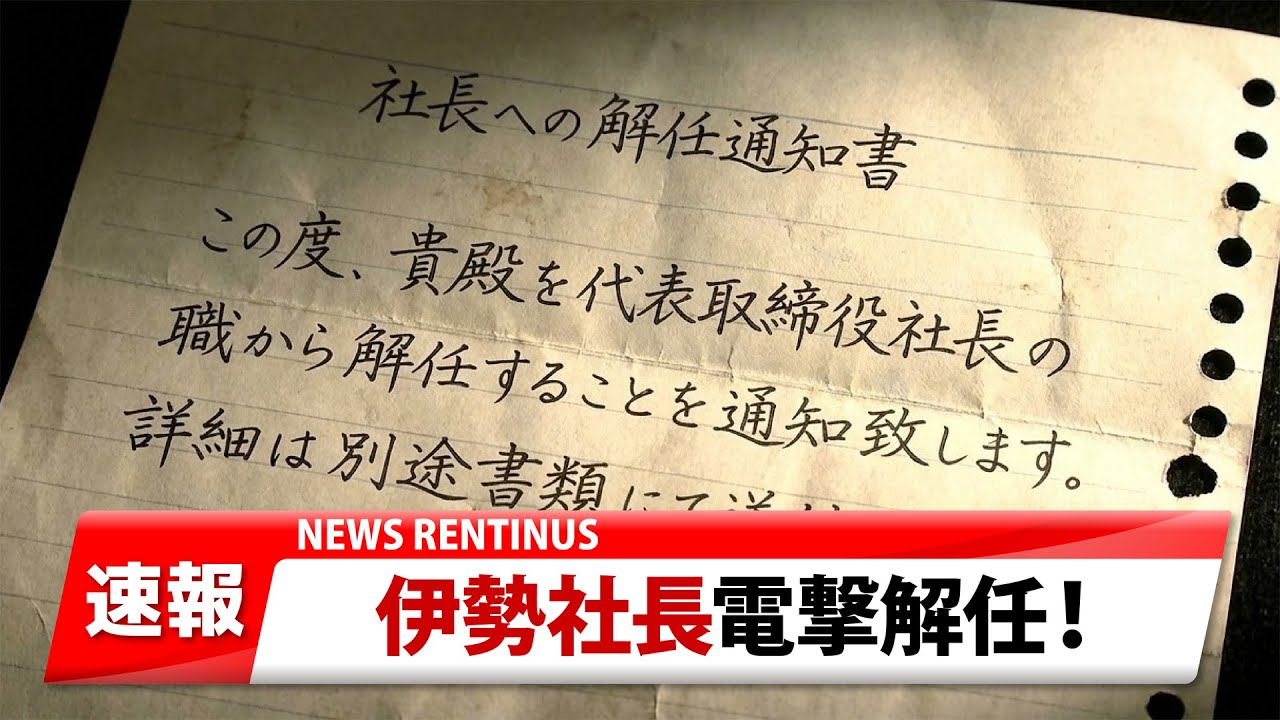 社長への解任通知書
この度、貴殿を代表取締役社長の
職から解任することを通知致します。
詳細は別途書類にて送付
NEWS RENTINUS
速報
伊勢社長電撃解任！